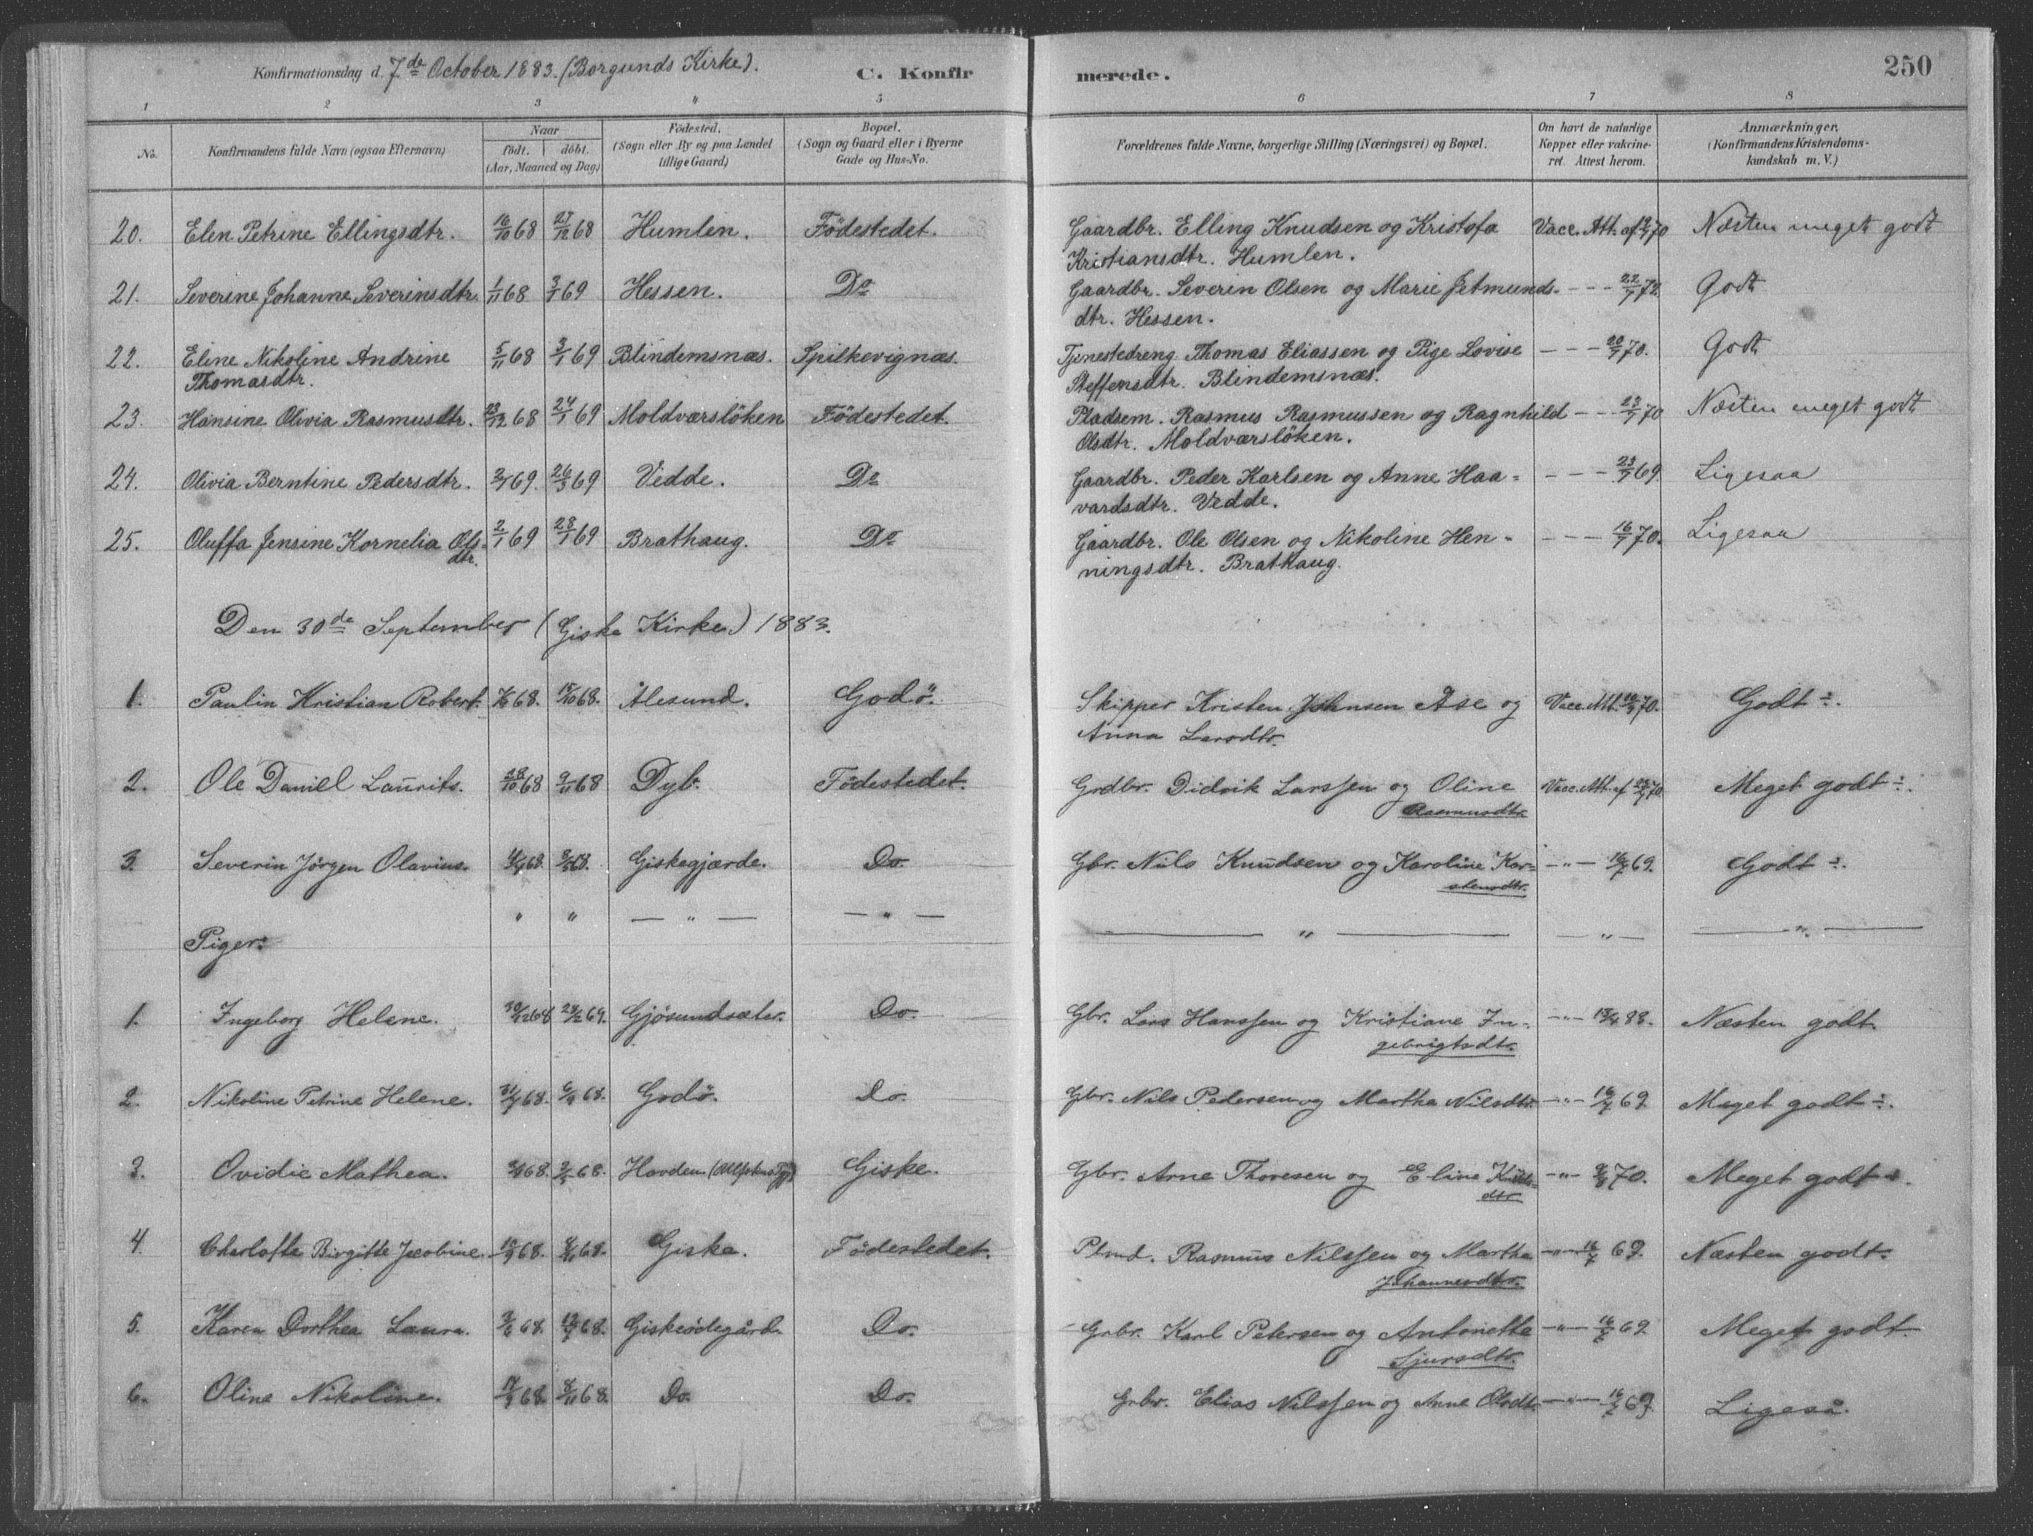 Konfirmationsdag d. 7de October 1883. (Borgunds Kirke). C. Konfir merede. 250
1 2 3 " 5 6 7 8
No. Konfirmandens fulde Navn (ogsaa Efternavn) Naar födt. döbt. (Aar, Maaned og Dag) Födested. (Sogn eller By og paa Landet tillige Gaard) Bopæl. (Sogn og Gaard eller i Byerne Gade og Hus-No. Forældrenes fulde Navne, borgerlige Stilling (Næringsvei) og Bopæl. Om havt de naturlige Kopper eller vakcineret. Attest herom. Anmærkninger. (Konfirmandens Kristendomskundskab m. V.)
20. Elen Petrine Ellingsdtr. 16/10 68 27/12 68 Humlen. Födestedet. Gaardbr. Elling Knudsen og Kristofa Vacc. Att. af 70 Næsten meget godt
Kristiansdtr. Humlen.
21. Severine Johanne Severinsdtr. 1/11 68 3/1 69 Hessen. Do Gaardbr. Severin Olsen og Marie Jetmunds- - - - 22/7 72. Godt
dtr. Hessen.
22. Eline Nikoline Andrine 5/11 68 3/1 69 Blindemsnæs. Spilkevignæs. Tjenestedreng Thomas Eliassen og Pige Lovise - - - 20/7 70. Godt
Thomasdtr. Steffensdtr. Blindemsnæs.
23. Hansine Olivia Rasmusdtr. 12 68 24/1 69 Moldværslöken Födestedet. Pladsem. Rasmus Rasmussen og Ragnhild - - - 23/7 70 Næsten meget godt
Olsdtr. Moldværslöken.
24. Olivia Berntine Pedersdtr. 2/1 69. 26/3 69 Vedde. Do Gaardbr. Peder Karlsen og Anne Haa- - - - 23/7 69 Ligesaa
vardsdtr. Vedde.
25. Oluffa Jensine Kornelia Ols- 2/1 69 28/1 69 Brathaug. Do Gaardbr. Ole Olsen og Nikoline Hen- - - - 16/7 70. Ligesaa
dtr. ningsdtr. Brathaug.
Den 30de September (Giske Kirke) 1883.
1. Paulin Kristian Robert. 68. 15/10 68. Ålesund. Godö. Skipper Kristen Johnsen Åse og Vacc. Att. 70. Godt ÷.
Anna Larsdtr.
2. Ole Daniel Laurits. 28/10 68 9/11 68 Dyb. Födestedet. Grdbr. Didrik Larssen og Oline Vacc. Att. af 70 Meget godt ÷.
Rasmusdtr.
3. Severin Jörgen Olavius. 68. 68. Giskegjærde. Do. Gbr. Nils Knudsen og Karoline Kar- - " - 16/7 69. Godt ÷.
stensdtr.
" " — " — — " — — " — — " — — " —
Piger:
1. Ingeborg Helene. 30/12 68 24/2 69. Gjösundsæter. Do. Gbr. Lars Hanssen og Kristiane In- - " - 18/4 83. Næsten godt.
gebrigtsdtr.
2. Nikoline Petrine Helene. 31/7 68. 6/9 68. Godö. Do. Gbr. Nils Pedersen og Martha Nilsdtr. - " - 16/7 69. Meget godt ÷.
3. Ovidie Mathea. 68. 68. Havden Giske. Gbr. Arne Thoresen og Eline Knuds- - " - 70. Meget godt ÷.
dtr.
4. Charlotte Birgitte Jacobine. 68. 68. Giske. Födestedet. Plmd. Rasmus Nilssen og Martha - " - 16/7 69. Næsten godt.
Johannesdtr.
5. Karen Dorthea Laura. 68. 68. Giskeödegård. Do. Grbr. Karl Petersen og Antonette - " - 16/7 69. Meget godt.
Sjursdtr.
6. Oline Nikoline. 68. 8/11 68. Do. Do. Grbr. Elias Nilssen og Anne Olsdtr. - " - 16/7 69. Ligeså.